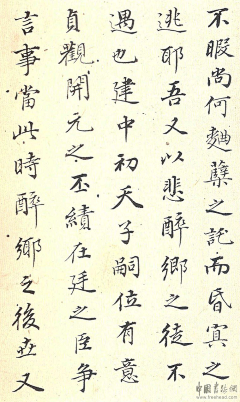 不暇尚何麹蘖之託而昏冥之
逃耶吾又以悲醉鄉之徒不
遇也建中初天子嗣位有意
貞觀開元之丕績在廷之臣争
言事當此時醉鄉之後世又
中国书法网
www.freehead.com